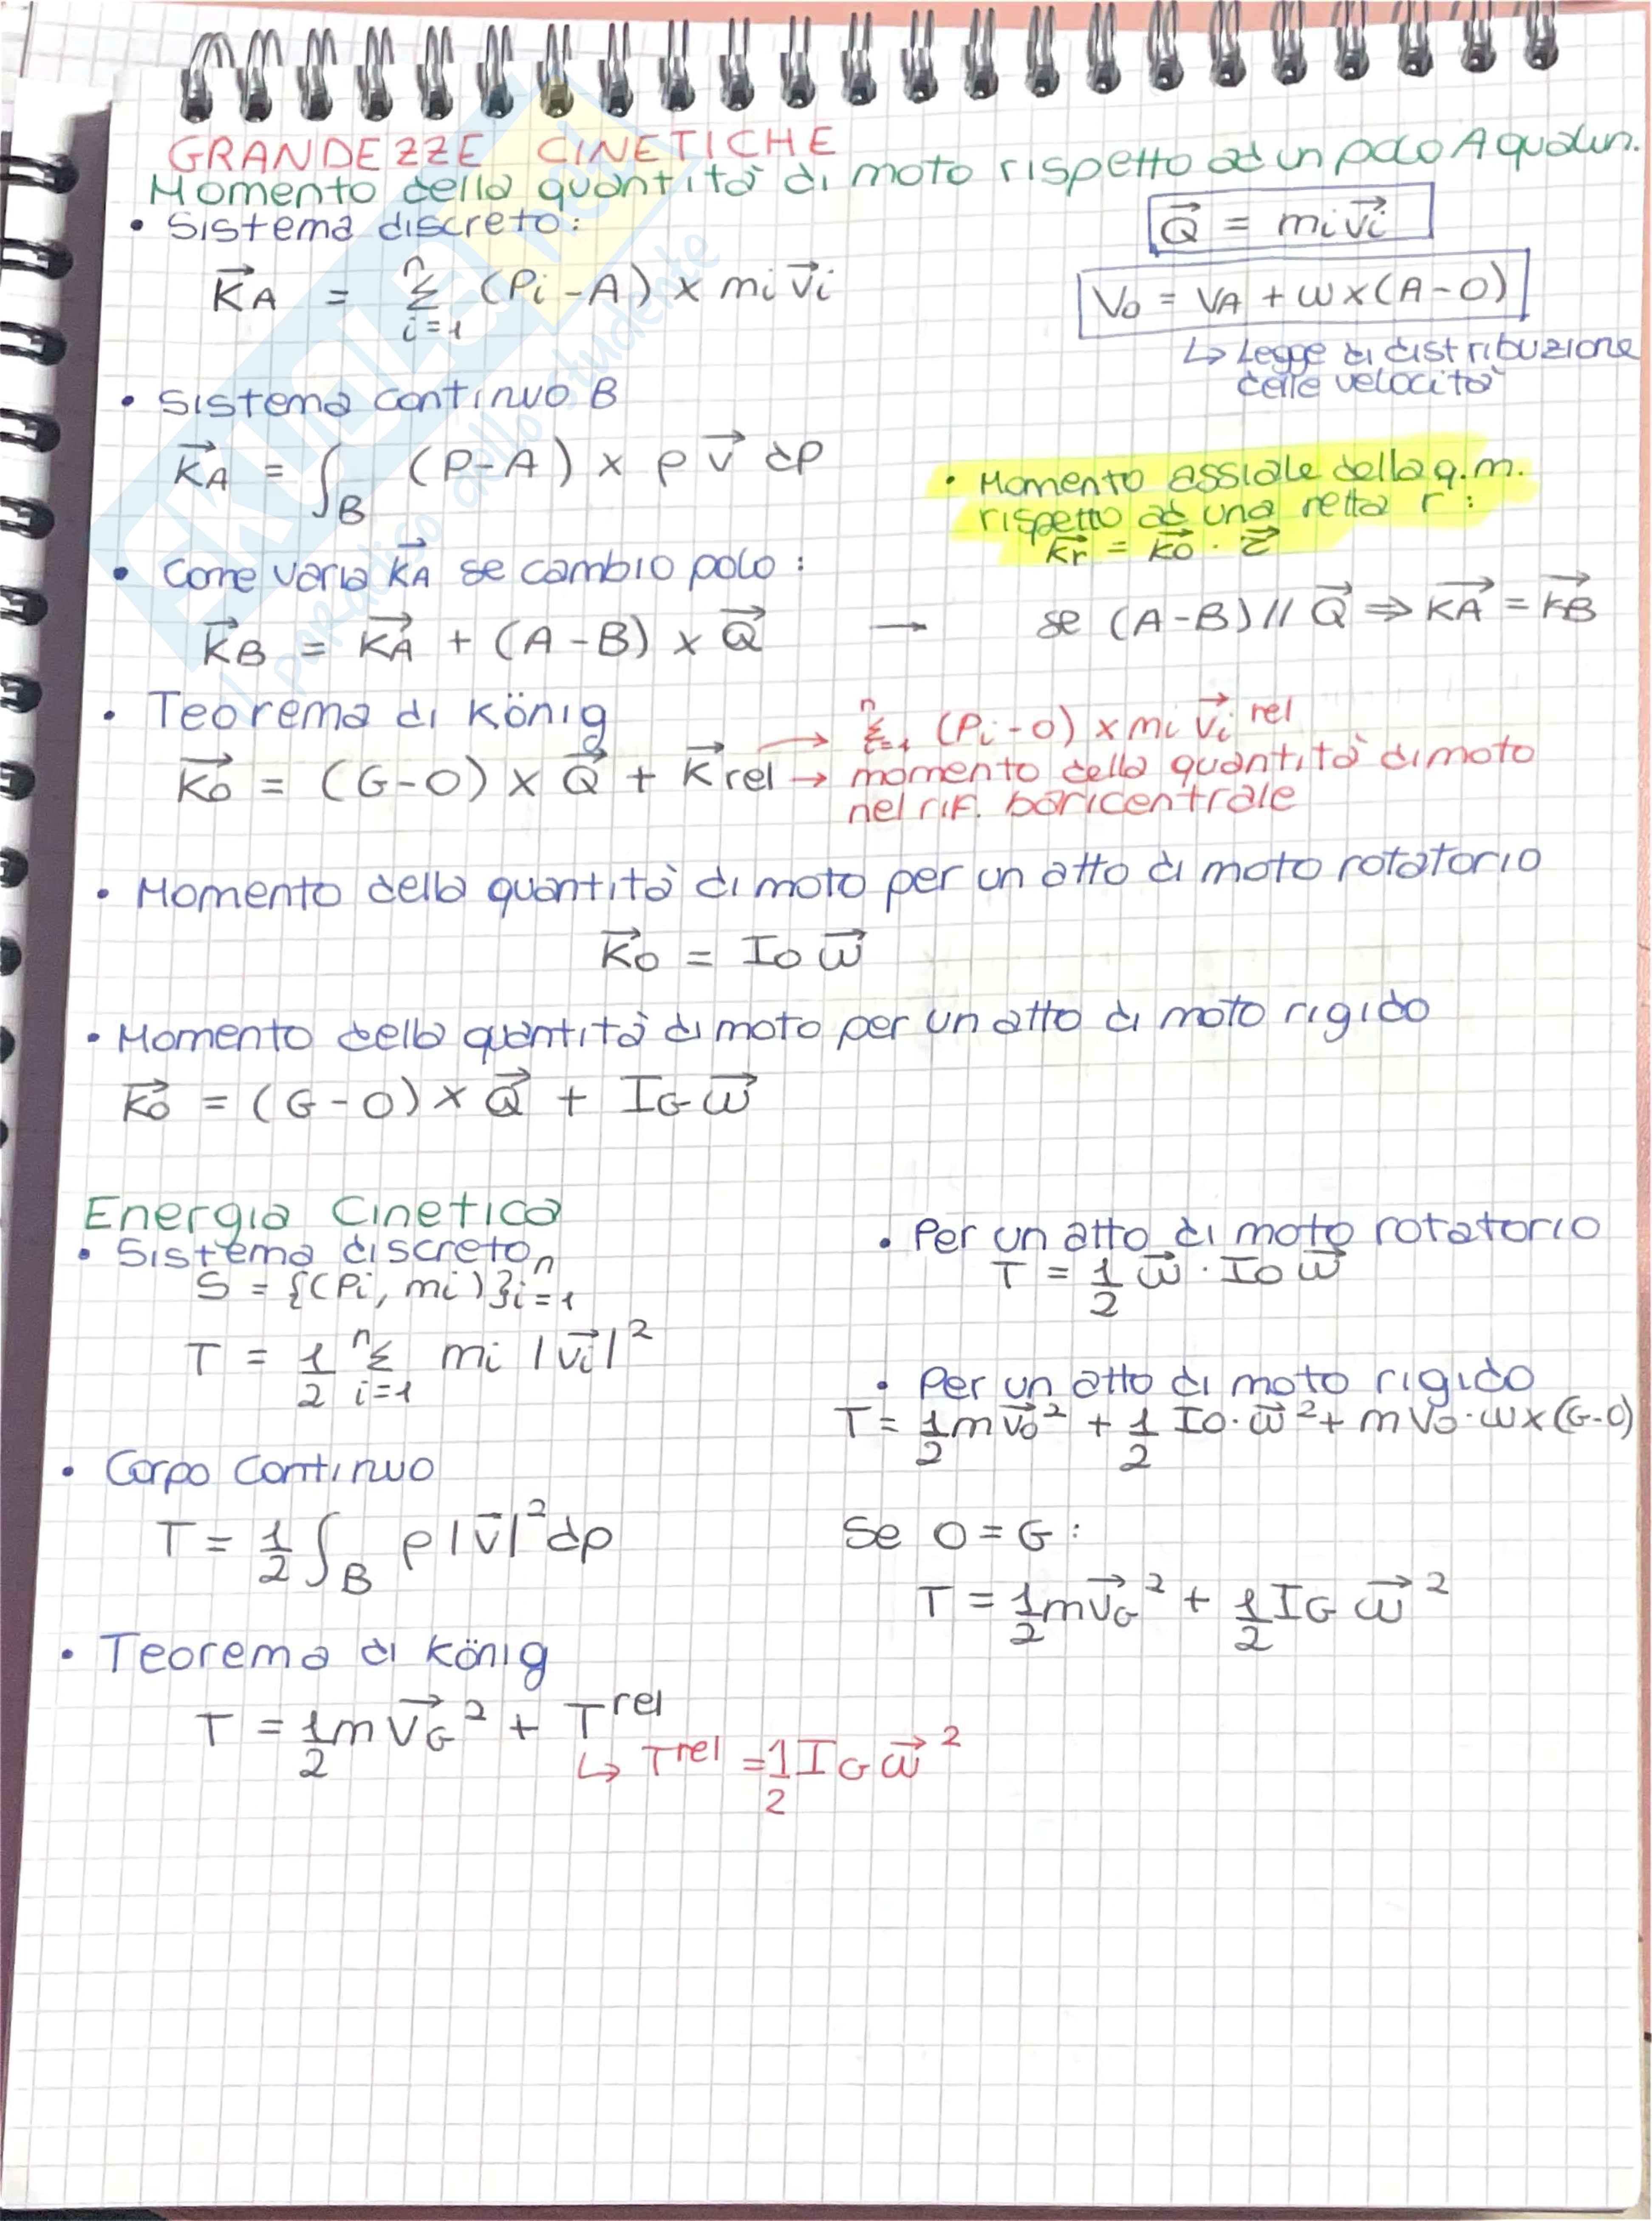 GRANDEZZE CINETICHE
Momento della quantità di moto rispetto ad un polo A qualun.
• Sistema discreto:
K⃗A = Σ_{i=1}^{n} (Pi - A) × mi v⃗i
Q⃗ = mi v⃗i
Vo = VA + ω × (A - O)
↳ Legge di distribuzione
delle velocità
• Sistema continuo B
K⃗A = ∫_B (P - A) × ρ v⃗ dp
• Momento assiale della q.m.
rispetto ad una retta r:
K⃗r = K⃗o · e⃗
• Come varia K⃗A se cambio polo:
K⃗B = K⃗A + (A - B) × Q⃗ → se (A - B) // Q⃗ ⇒ K⃗A = K⃗B
• Teorema di König
K⃗o = (G - O) × Q⃗ + K⃗ rel
→ Σ_{i=1}^{n} (Pi - O) × mi v⃗i rel
→ momento della quantità di moto
nel rif. baricentrale
• Momento della quantità di moto per un atto di moto rotatorio
K⃗o = Io ω⃗
• Momento della quantità di moto per un atto di moto rigido
K⃗o = (G - O) × Q⃗ + IG ω⃗
Energia Cinetica
• Sistema discreto
S = {(Pi, mi)}_{i=1}^{n}
T = 1/2 Σ_{i=1}^{n} mi |v⃗i|²
• Corpo continuo
T = 1/2 ∫_B ρ |v⃗|² dp
• Teorema di König
T = 1/2 m v⃗G² + T^rel
↳ T^rel = 1/2 IG ω⃗²
• Per un atto di moto rotatorio
T = 1/2 ω⃗ · Io ω⃗
• Per un atto di moto rigido
T = 1/2 m v⃗o² + 1/2 Io · ω⃗² + m vo · ω × (G - O)
Se O = G:
T = 1/2 m v⃗G² + 1/2 IG ω⃗²
SKUOLA.net
il paradiso dello studente